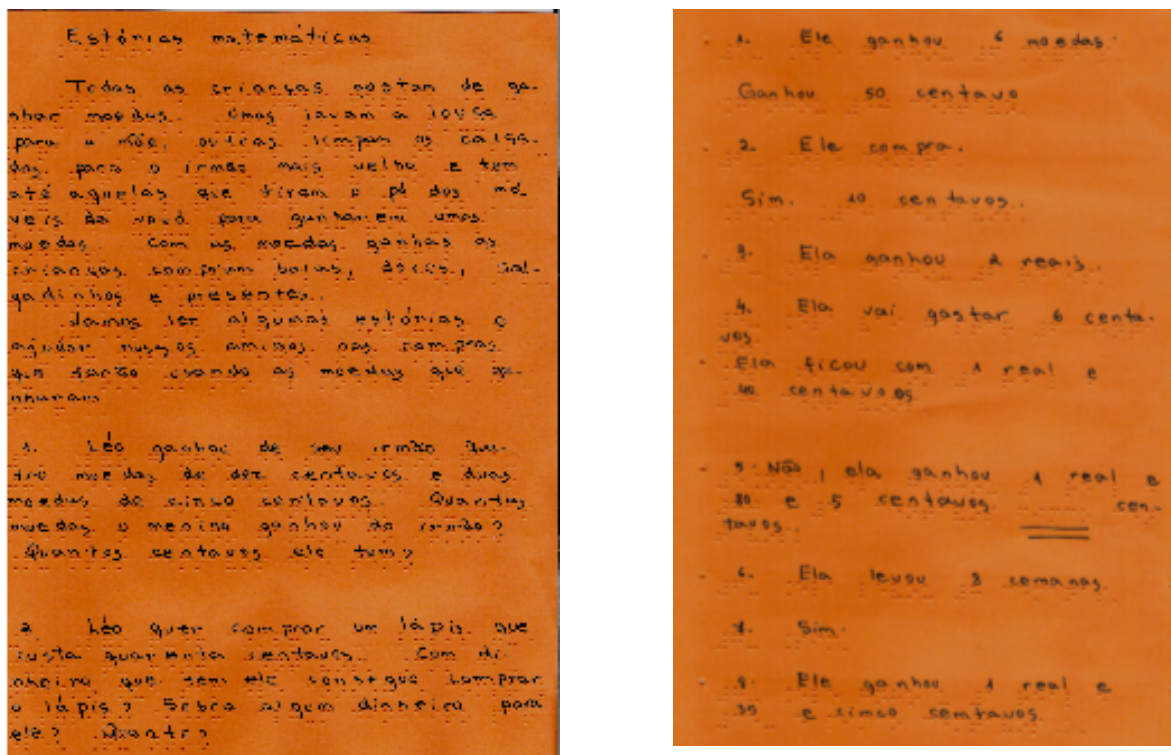 Estórias matemáticas
Todas as crianças gostam de ga-
nhar moedas. Umas lavam a louça
para a mãe, outras limpam os calça-
dos para o irmão mais velho e tem
até aquelas que tiram o pó dos mó
veis da vovó para ganharem umas
moedas. Com as moedas ganhas as
crianças compram balas, doces, sal-
gadinhos e presentes.
Vamos ler algumas estórias e
ajudar nossos amigos nas compras
que farão usando as moedas que ga-
nharam
1. Léo ganhou de seu irmão qua-
tro moedas de dez centavos e duas
moedas de cinco centavos. Quantas
moedas o menino ganhou do irmão?
Quantos centavos ele tem?
2 Léo quer comprar um lápis que
custa quarenta centavos. Com di-
nheiro que tem ele consegue comprar
o lápis? Sobra algum dinheiro para
ele? Quanto?
1. Ele ganhou 6 moedas.
Ganhou 50 centavo
2. Ele compra.
Sim. 10 centavos.
3. Ela ganhou 2 reais.
4. Ela vai gastar 6 centa-
vos
Ela ficou com 1 real e
40 centavos
5. Não, ela ganhou 1 real e
80 e 5 centavos. cen-
tavos.
6. Ela levou 3 semanas.
7. Sim.
8. Ele ganhou 1 real e
35 e cinco centavos